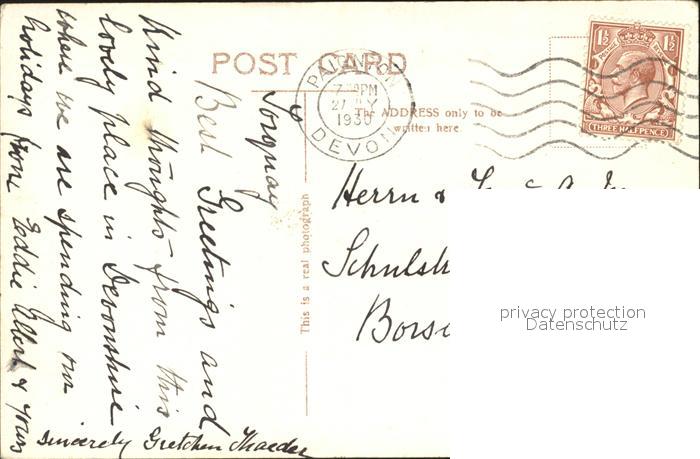 POST CARD
PAIGNTON
7 PM
27 Y
1930
DEVON
1½ 1½
POSTAGE REVENUE
THREE HALFPENCE
The ADDRESS only to be
written here.
This is a real photograph
Torquay
Best Greetings and
Kind thoughts from this
lovely place in Devonshire
where we are spending our
holidays from Eddie Albert & yours
sincerely Gretchen
Herrn &
Schulst
Bors
privacy protection
Datenschutz